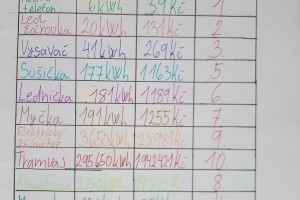 telefon 6kWh 39Kč 1.
Led
žárovka 20kWh 131Kč 2.
Vysavač 41kWh 269Kč 3.
Sušička 177kWh 1163Kč 5.
Lednička 181kWh 1189Kč 6.
Myčka 191kWh 1255Kč 7.
Elektrický
přímotop 3650kWh 9.
Tramvaj 295650kWh 1942421Kč 10.
8.